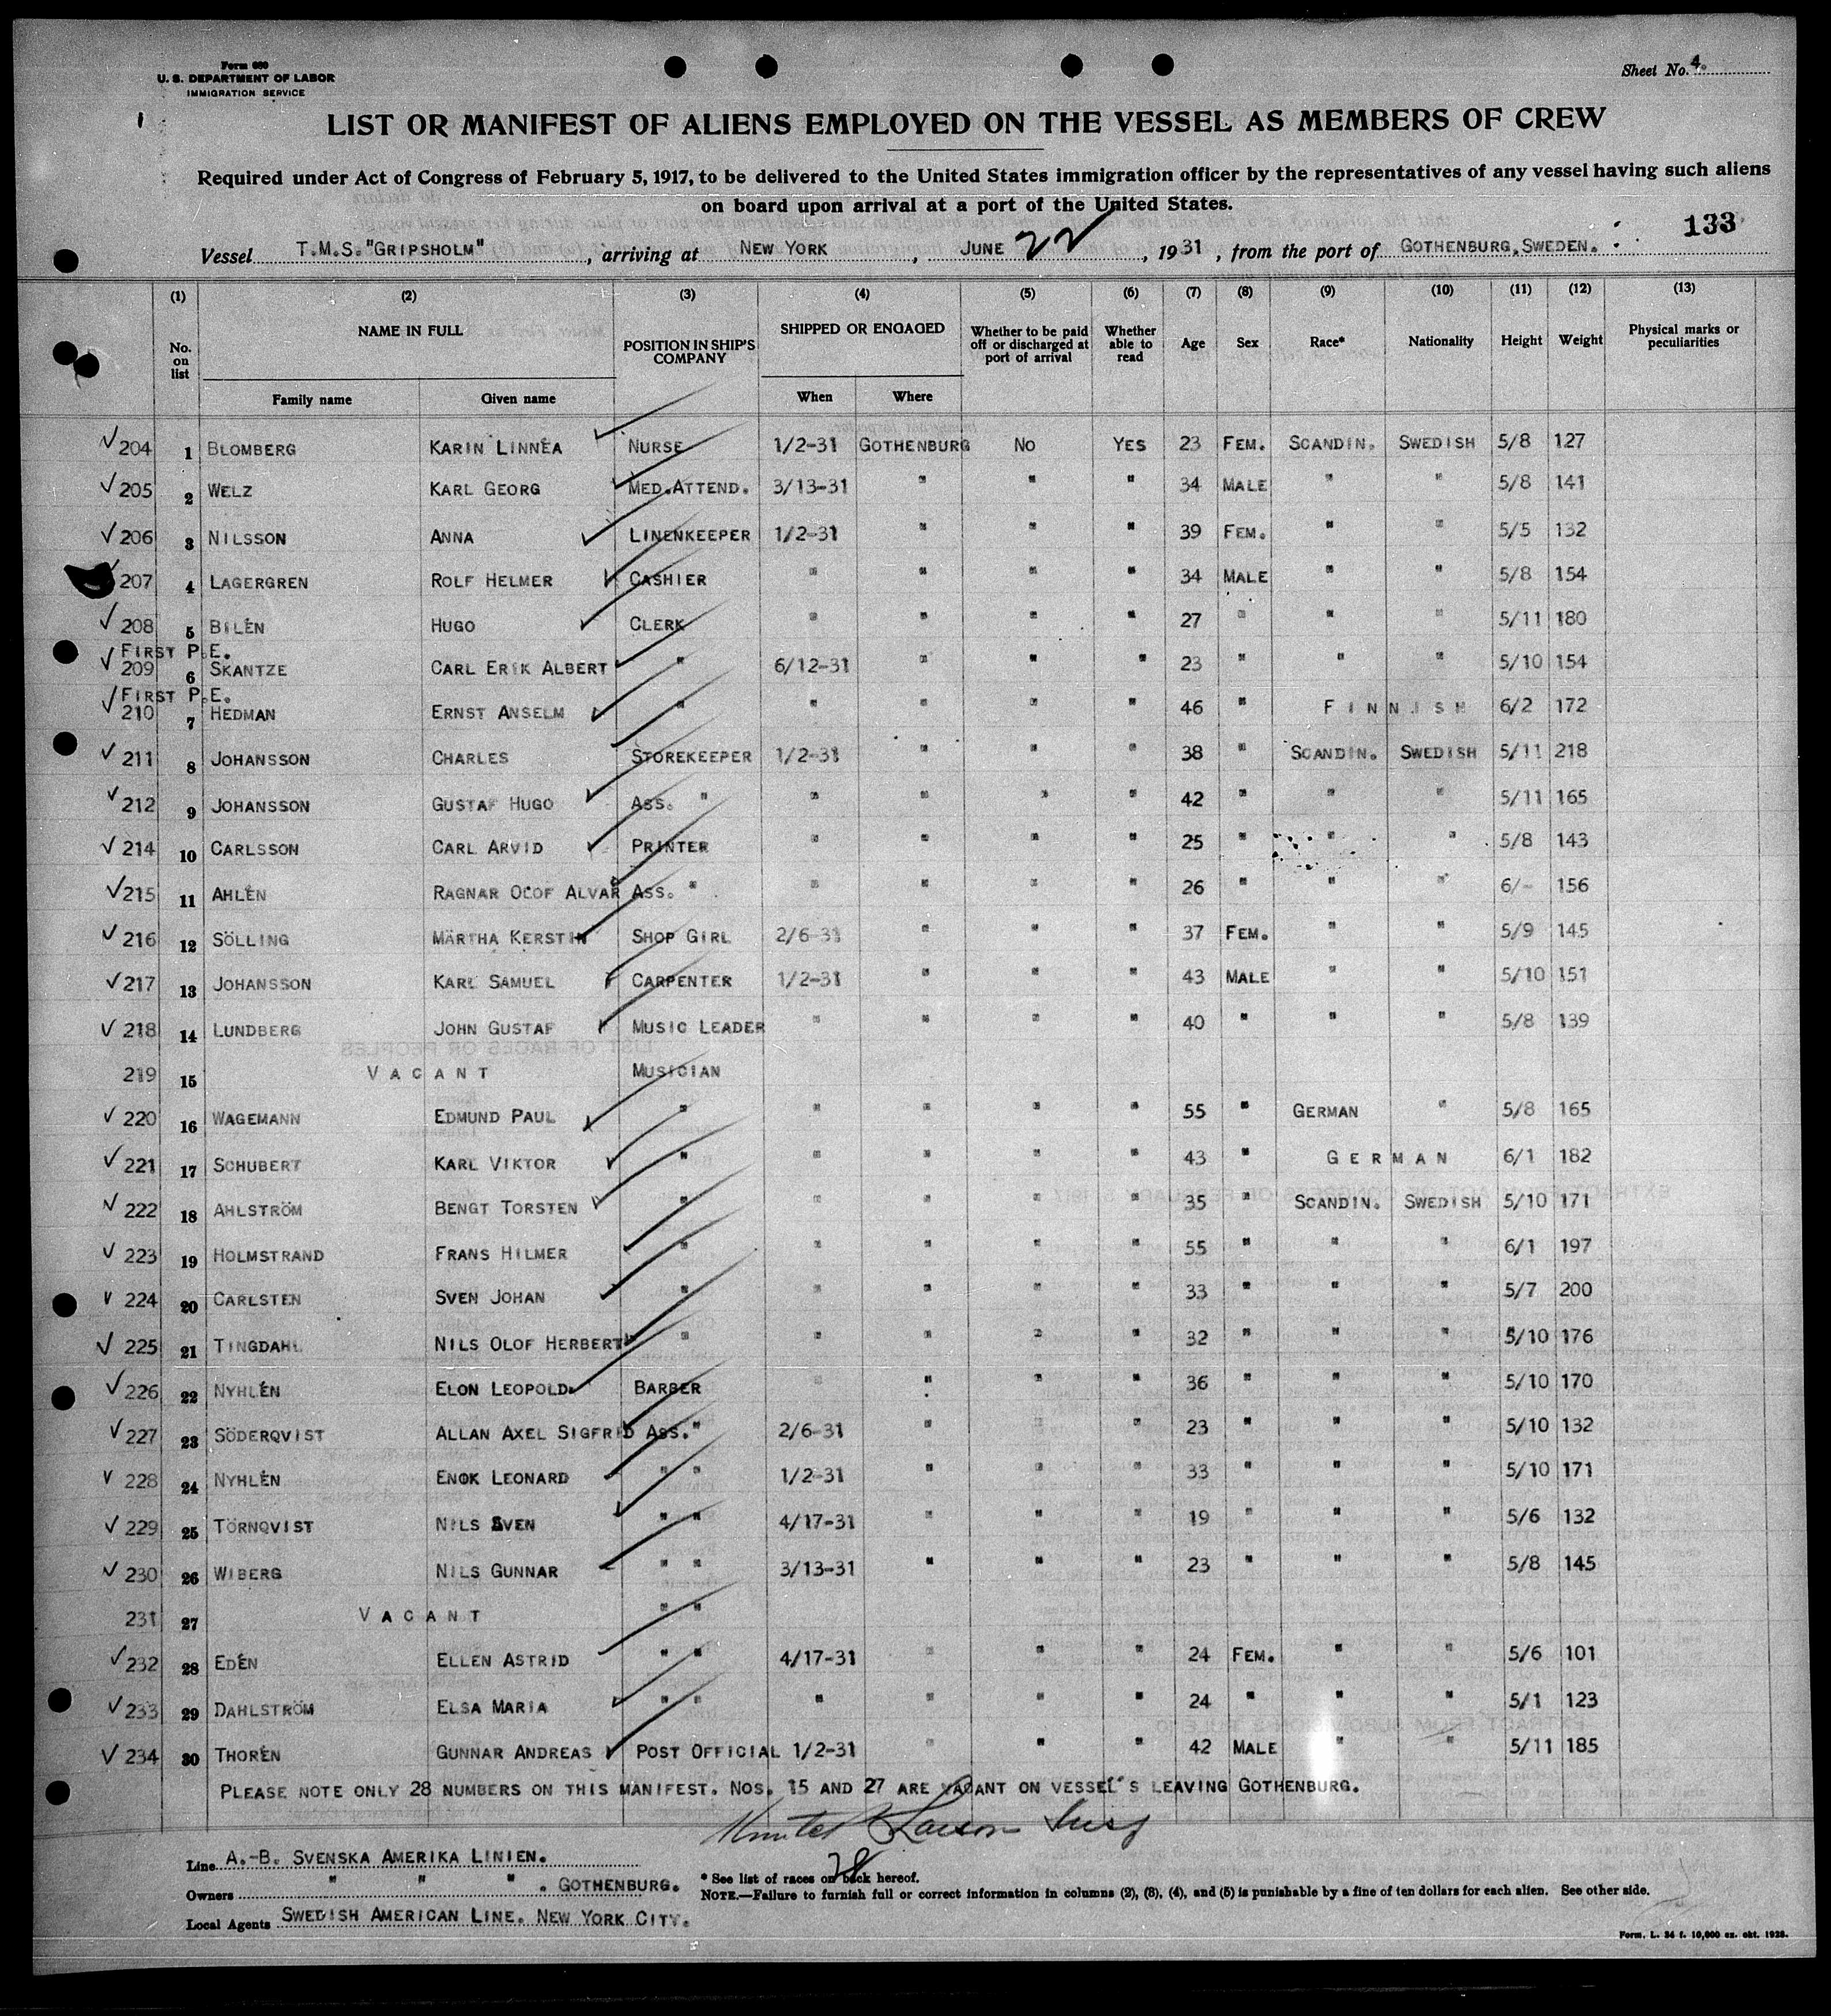 Form 680
U. S. DEPARTMENT OF LABOR
IMMIGRATION SERVICE
Sheet No. 4.
LIST OR MANIFEST OF ALIENS EMPLOYED ON THE VESSEL AS MEMBERS OF CREW
Required under Act of Congress of February 5, 1917, to be delivered to the United States immigration officer by the representatives of any vessel having such aliens
on board upon arrival at a port of the United States.
133
Vessel T.M.S. "GRIPSHOLM", arriving at NEW YORK, JUNE 22, 1931, from the port of GOTHENBURG, SWEDEN.
(1) (2) (3) (4) (5) (6) (7) (8) (9) (10) (11) (12) (13)
No. on list NAME IN FULL POSITION IN SHIP'S COMPANY SHIPPED OR ENGAGED Whether to be paid off or discharged at port of arrival Whether able to read Age Sex Race* Nationality Height Weight Physical marks or peculiarities
Family name Given name When Where
√ 204 1 BLOMBERG KARIN LINNÉA NURSE 1/2-31 GOTHENBURG NO YES 23 FEM. SCANDIN. SWEDISH 5/8 127
√ 205 2 WELZ KARL GEORG MED.ATTEND. 3/13-31 " " " 34 MALE " " 5/8 141
√ 206 3 NILSSON ANNA LINENKEEPER 1/2-31 " " " 39 FEM. " " 5/5 132
√ 207 4 LAGERGREN ROLF HELMER CASHIER " " " " 34 MALE " " 5/8 154
√ 208 5 BILÉN HUGO CLERK " " " " 27 " " " 5/11 180
FIRST P.E.
√ 209 6 SKANTZE CARL ERIK ALBERT " 6/12-31 " " " 23 " " " 5/10 154
FIRST P.E.
√ 210 7 HEDMAN ERNST ANSELM " " " " " 46 " FINNISH 6/2 172
√ 211 8 JOHANSSON CHARLES STOREKEEPER 1/2-31 " " " 38 " SCANDIN. SWEDISH 5/11 218
√ 212 9 JOHANSSON GUSTAF HUGO ASS. " " " " " 42 " " " 5/11 165
√ 214 10 CARLSSON CARL ARVID PRINTER " " " " 25 " " " 5/8 143
√ 215 11 AHLÉN RAGNAR OLOF ALVAR ASS. " " " " " 26 " " " 6/- 156
√ 216 12 SÖLLING MÄRTHA KERSTIN SHOP GIRL 2/6-31 " " " 37 FEM. " " 5/9 145
√ 217 13 JOHANSSON KARL SAMUEL CARPENTER 1/2-31 " " " 43 MALE " " 5/10 151
√ 218 14 LUNDBERG JOHN GUSTAF MUSIC LEADER " " " " 40 " " " 5/8 139
219 15 VACANT MUSICIAN
√ 220 16 WAGEMANN EDMUND PAUL " " " " " 55 " GERMAN " 5/8 165
√ 221 17 SCHUBERT KARL VIKTOR " " " " " 43 " GERMAN 6/1 182
√ 222 18 AHLSTRÖM BENGT TORSTEN " " " " " 35 " SCANDIN. SWEDISH 5/10 171
√ 223 19 HOLMSTRAND FRANS HILMER " " " " " 55 " " " 6/1 197
√ 224 20 CARLSTEN SVEN JOHAN " " " " " 33 " " " 5/7 200
√ 225 21 TINGDAHL NILS OLOF HERBERT " " " " " 32 " " " 5/10 176
√ 226 22 NYHLÉN ELON LEOPOLD. BARBER " " " " 36 " " " 5/10 170
√ 227 23 SÖDERQVIST ALLAN AXEL SIGFRID ASS. " 2/6-31 " " " 23 " " " 5/10 132
√ 228 24 NYHLÉN ENOK LEONARD " " 1/2-31 " " " 33 " " " 5/10 171
√ 229 25 TÖRNQVIST NILS SVEN " " 4/17-31 " " " 19 " " " 5/6 132
√ 230 26 WIBERG NILS GUNNAR " " 3/13-31 " " " 23 " " " 5/8 145
231 27 VACANT " "
√ 232 28 EDÉN ELLEN ASTRID " " 4/17-31 " " " 24 FEM. " " 5/6 101
√ 233 29 DAHLSTRÖM ELSA MARIA " " " " " " 24 " " " 5/1 123
√ 234 30 THORÉN GUNNAR ANDREAS POST OFFICIAL 1/2-31 " " " 42 MALE " " 5/11 185
PLEASE NOTE ONLY 28 NUMBERS ON THIS MANIFEST. NOS. 15 AND 27 ARE VACANT ON VESSEL'S LEAVING GOTHENBURG.
Line A.-B. SVENSKA AMERIKA LINIEN.
28
Owners " " " . GOTHENBURG.
Local Agents SWEDISH AMERICAN LINE. NEW YORK CITY.
* See list of races on back hereof.
NOTE.—Failure to furnish full or correct information in columns (2), (3), (4), and (5) is punishable by a fine of ten dollars for each alien. See other side.
Form. L. 34 f. 10,000 ex. okt. 1928.